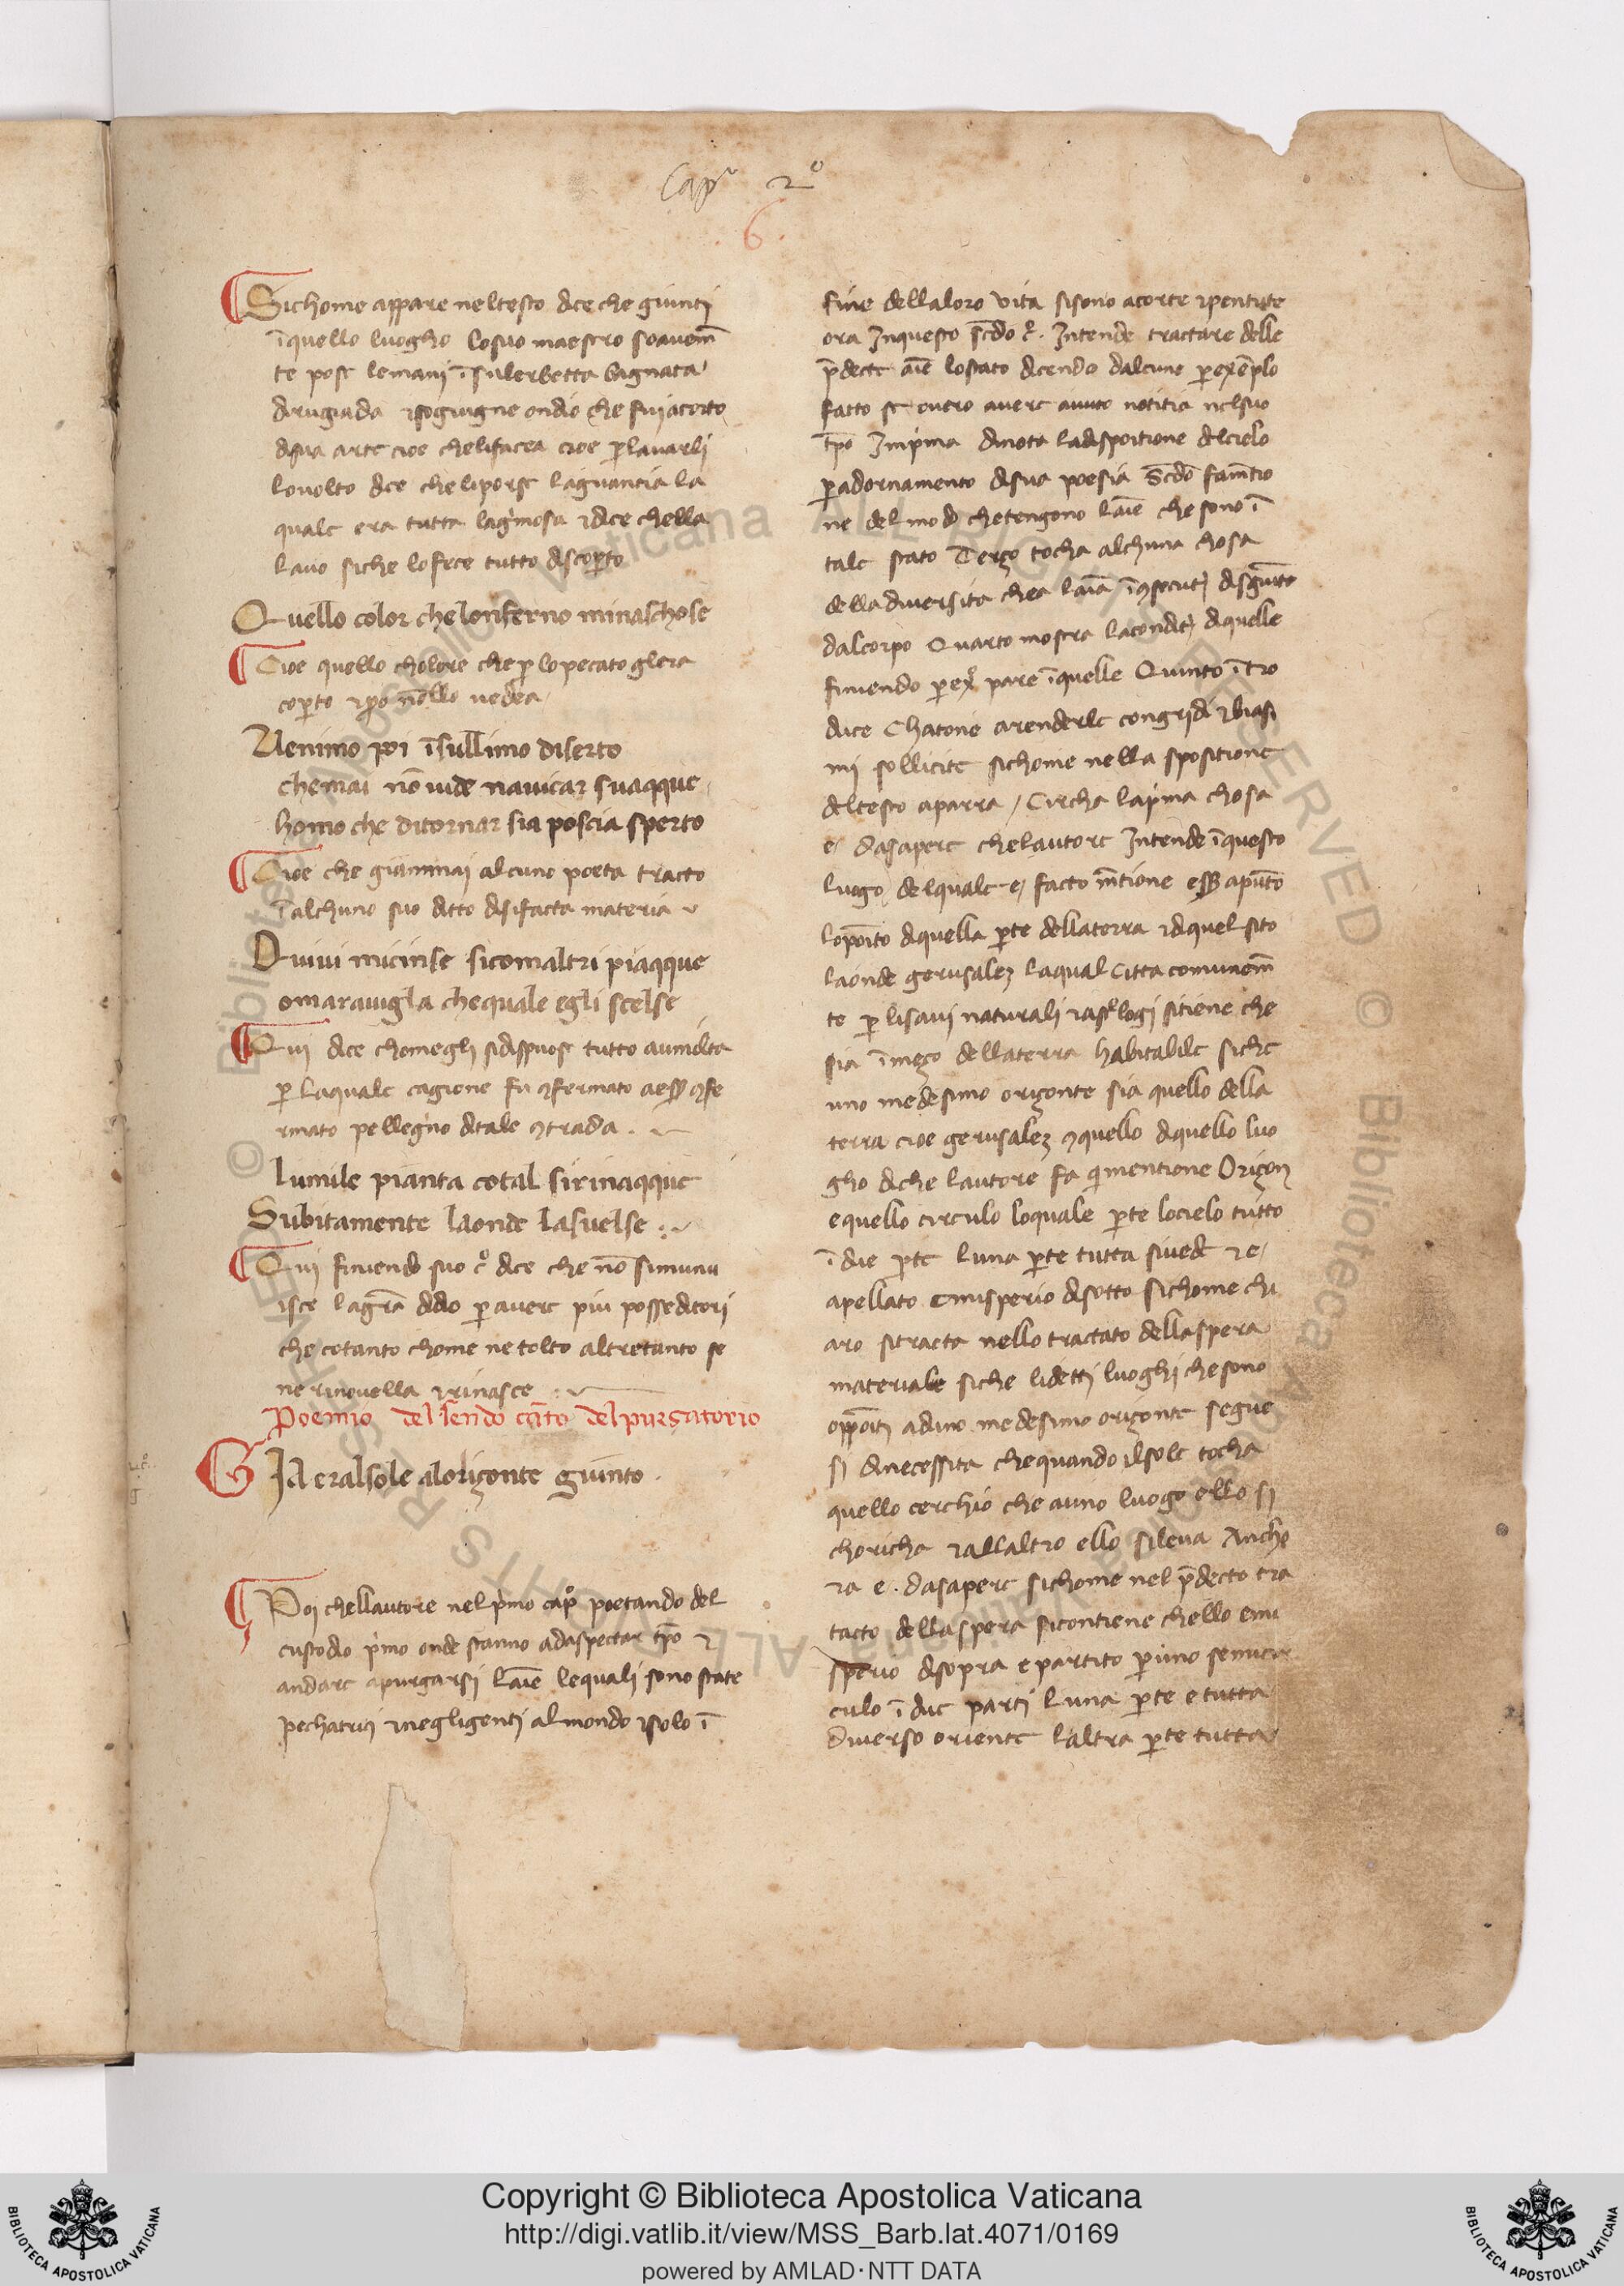 Capº 2º
6
Sichome appare neltesto dice che giunti
ī quello luogho losuo maestro soauem̄
te pose lemani ī sulerbetta bagnata
dirugiada ⁊ sogiugne ondio che fui acorto
disua arte cioe chelifacea cioe ꝑ lauarli
louolto dice che liporse laguancia la
quale era tutta lagrimosa ⁊ dice chella
lauo siche lofece tutto discoꝑto
Quello color chelonferno minaschose
Cioe quello cholore che ꝑ lo pecato glera
coꝑto ⁊ ꝑo nōllo uedea
Uenimo poi ī sullimo diserto
chemai nō uide nauicar suaqque
homo che ditornar sia poscia sperto
Cioe che giammai alcuno poeta tracto
ī alchuno suo ditto disifacta materia
Quiui micinse sicomaltri piaqque
omarauigla chequale egli scelse
Qui dice chomegli sidispuose tutto aumilta
ꝑ laquale cagione fu ꝯfermato aesser ꝯfe
rmato pellegrino ditale ꝯtrada .
lumile pianta cotal sirinaqque
Subitamente laonde lasuelse
Qui finiendo suo cº dice che nō siminu
isce lagrā didio ꝑ auere piu posseditori
che cotanto chome ne tolto altretanto se
ne rinouella ⁊ rinasce
Poemio del secndo cāto del purgatorio
GIa eralsole alorizonte giunto .
Poi chellautore nel primo capº poetando del
custodio primo onde stanno adaspectar tp̄o ⁊
andare apurgarsi laīe lequali sono state
pechatrici ⁊ negligenti al mondo ⁊ solo ī
fine dellaloro vita sisono acorte ⁊ pentute
ora Inquesto sc̄do cº . Intende tractare delle
p̄decte aīe lostato dicendo dalcune ꝑ exēplo
fatto se ouero auere auuto notitia nelsuo
tp̄o Imprima dinota ladispositione delcielo
ꝑ adornamento disua poesia Sc̄do fam̄tio
ne del modo chetengono laīe che sono ī
tale stato Terzo tocha alchuna chosa
delladiuersita
dalcorpo Quarto mostra lacondit diquelle
finiendo ꝑ
dice Chatone arenderle congridi ⁊ biasi
mi sollicite sichome nella spositione
deltesto aparra / Circha laprima chosa
e / dasapere chelautore Intende ī questo
luogo delquale e / facto m̄tione esser apūto
lopōito diquella ꝑte dellaterra ⁊ diquel sito
laonde gerusalez laqual citta comunem̄
te ꝑ lisaui naturali ⁊ astrologi sitiene che
sia ī mezo dellaterra habitabile siche
uno medesimo orizonte sia quello della
terra cioe gerusalez ꝯquello diquello luo
gho diche lautore fa qui mentione Orizon
e quello circulo loquale ꝑte locielo tutto
ī due ꝑte luna ꝑte tutta siuede ⁊ e /
apellato emisperio disotto sichome chi
aro sitracta nello tractato dellaspera
materiale siche lidetti luoghi chesono
oppōiti aduno medesimo orizonte segue
si dinecessita chequando ilsole tocha
quello cerchio che anno luogo ello si
choricha ⁊ allaltro ello sileua Ancho
ra e . dasapere sichome nel p̄decto tra
tacto dellaspera sicontiene chello emi
sperio disopra e partito ꝑ uno semicir
culo ī due parti luna ꝑte e tutta
diuerso oriente laltra ꝑte tutta
Copyright © Biblioteca Apostolica Vaticana
http://digi.vatlib.it/view/MSS_Barb.lat.4071/0169
powered by AMLAD·NTT DATA
BIBLIOTECA APOSTOLICA VATICANA
BIBLIOTECA APOSTOLICA VATICANA